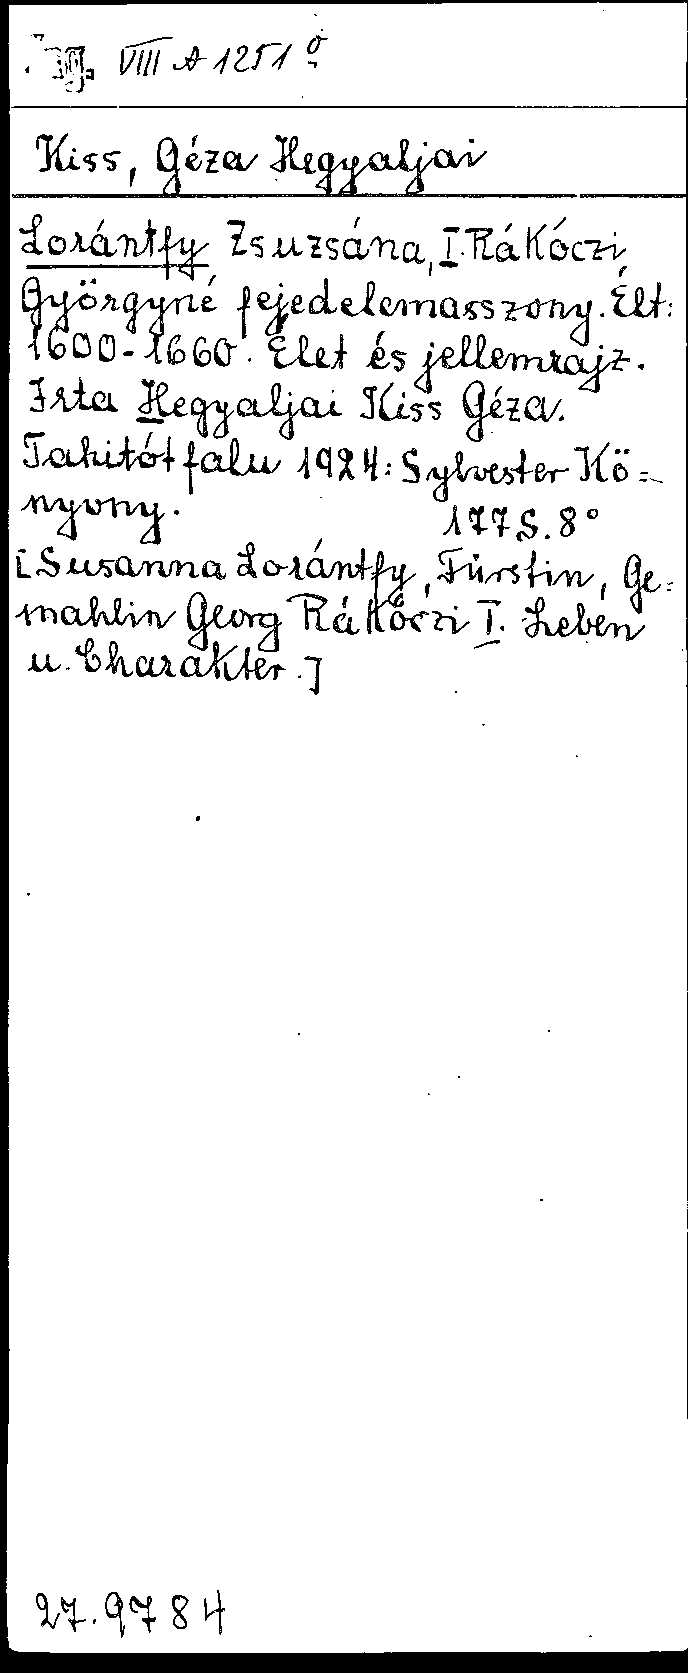 Ug. VIII A 1251 o
Kiss, Géza Hegyaljai
Lorántfy Zsuzsána, I. Rákóczi
Györgyné fejedelemasszony. Élt:
1600-1660. Élet és jellemrajz.
Irta Hegyaljai Kiss Géza.
Tahitótfalu 1924: Sylvester Kö=
nyvny.
177 S. 8°
[Susanna Lorántfy, Fürstin, Ge=
mahlin Georg Rákóczi I. Leben
u. Charakter.]
27.9784